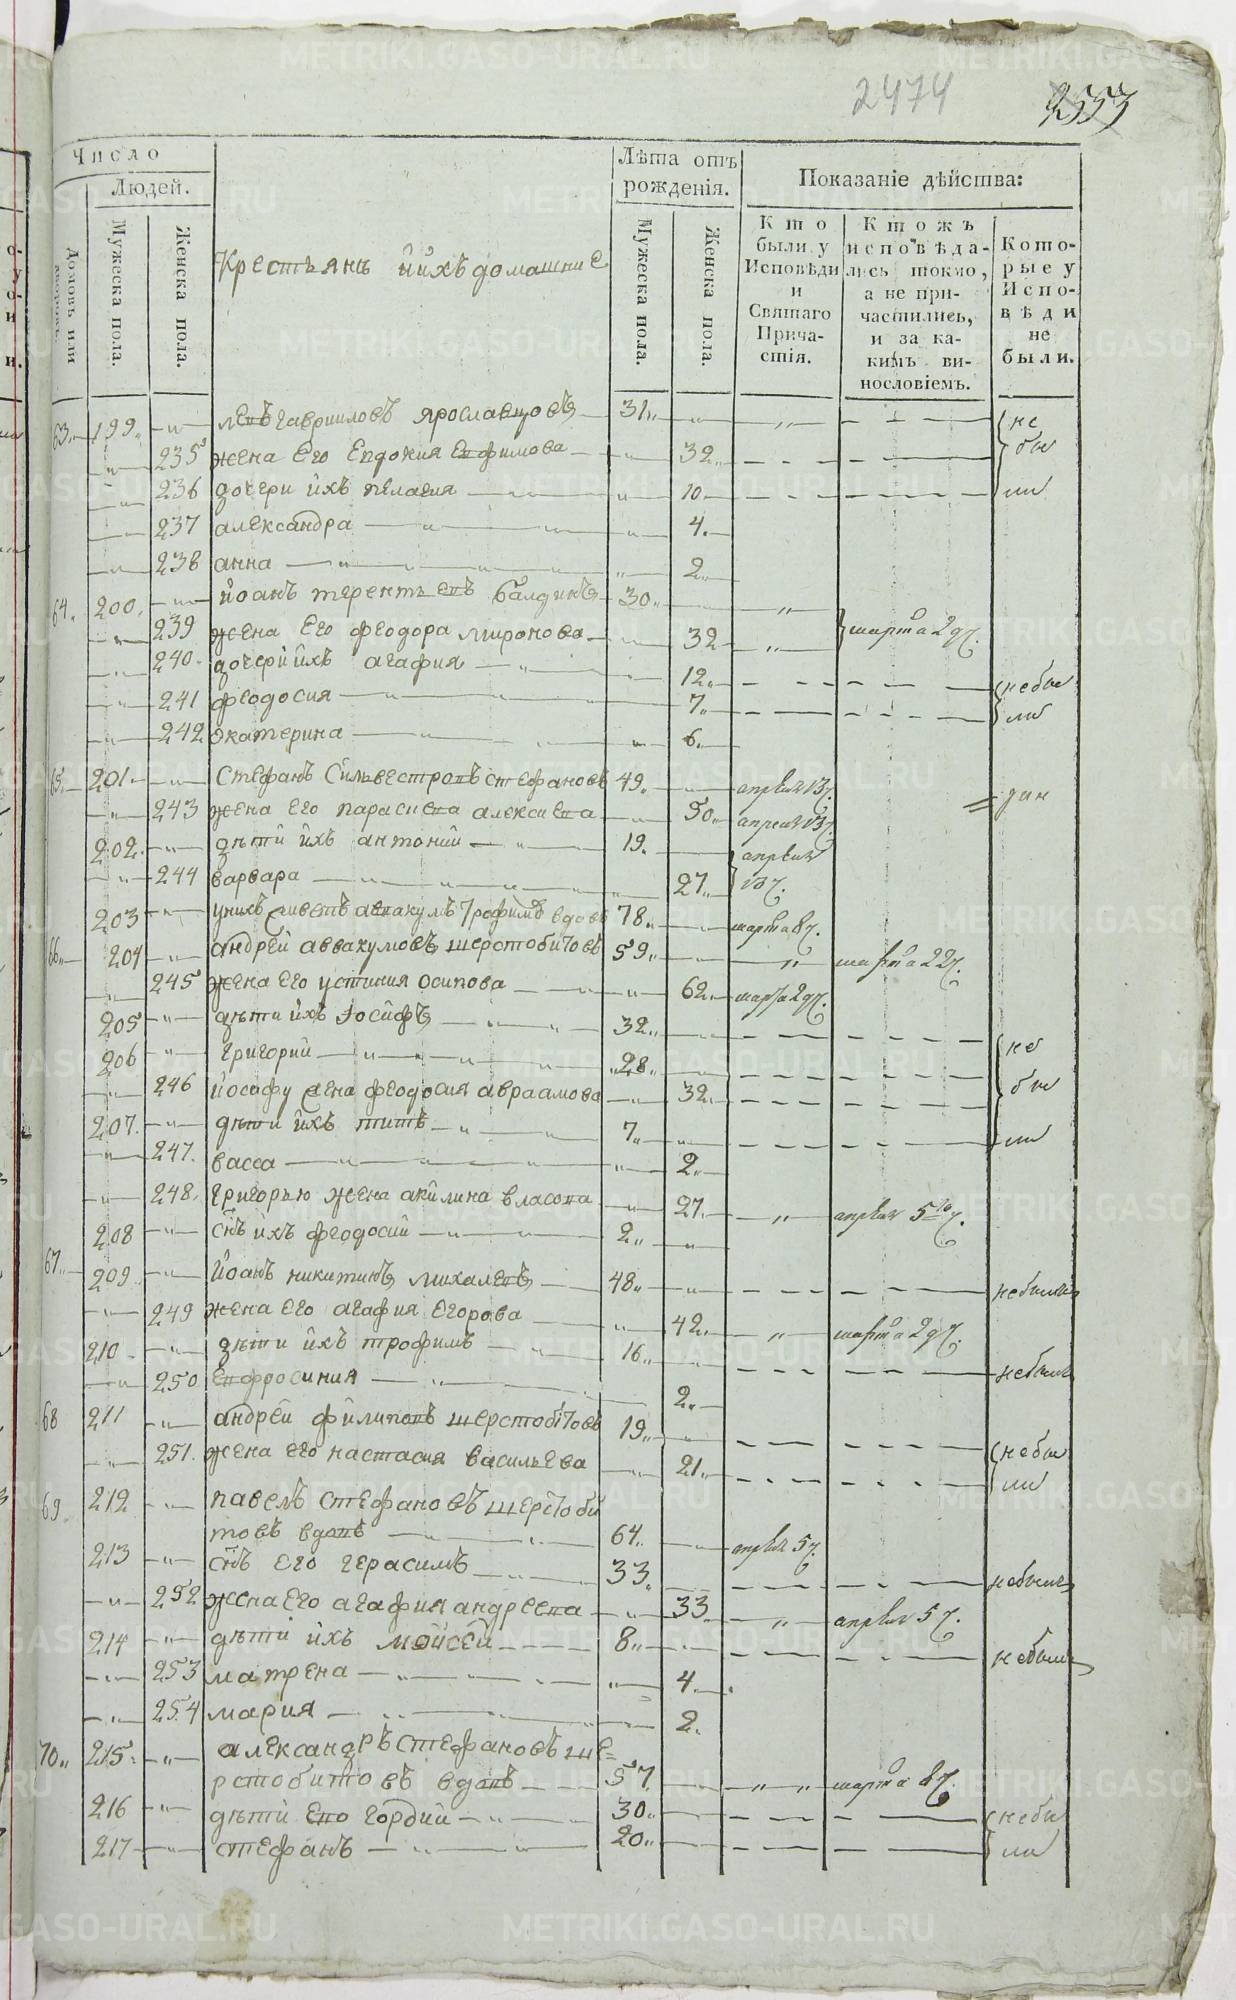 2474 2553
Число
Людей.
Домовъ или дворовъ.
Мужеска пола.
Женска пола.
Крестьянъ ийхъ домашние
Лѣта отъ рожденія.
Мужеска пола.
Женска пола.
Показаніе дѣйства:
Кто были у Исповѣди и Святаго Причастія.
Ктожъ исповѣдались токмо, а не причастились, и за какимъ винословіемъ.
Которые у Исповѣди не были.
63. 199. левъ гавриловъ ярославцовъ 31 не
235 жена Его Евдокия Евфимова 32 бы
236 дочери ихъ пелагия 10 ли
237 александра 4.
238 анна 2
64. 200. Йоанъ терентьевъ балдинъ 30
239 жена Его феодора миронова 32 марта 29.
240. дочери ихъ агафия 12 небы
241 феодосия 7 ли
242 екатерина 6
65. 201 Стефанъ Сильвестровъ стефановъ 49. апреля 13.
243 жена Его параскева алексиева 50 апреля 13.
202. дѣти ихъ антоний 19. апреля
244 варвара 27 13.
203 унихъ живетъ авакумъ Трофимовъ вдовъ 78 марта 8.
66 204 андрей аввакумовъ шерстобитовъ 59 марта 22.
245 жена его устиния осипова 62 марта 29.
205 дѣти ихъ Иосифъ 32 не
206 григорий 28 бы
246 йосифу жена феодосия авраамова 32
207. дѣти ихъ титъ 7 ли
247. васса 2
248. григорью жена акилина власова 27. апреля 5го.
208 сынъ ихъ феодосий 2
67. 209 Йоанъ никитинъ михалевъ 48 небыли
249 жена его агафия егорова 42 марта 29.
210 дѣти ихъ трофимъ 16 небыли
250 Евфросиния 2
68 211 андрей филиповъ шерстобитовъ 19 небы
251. жена его настасия васильева 21 ли
69. 212 павелъ стефановъ шерстоби
товъ вдовъ 64 апреля 5.
213 сынъ его герасимъ 33. небыли
252 жена Его агафия андреева 33 апреля 5.
214 дѣти ихъ мойсей 8 небыли
253 матрена 4
254 мария 2.
70 215 александръ стефановъ ше=
рстобитовъ вдовъ 57 марта 8.
216 дѣти Ево гордий 30 небы
217 стефанъ 20 ли